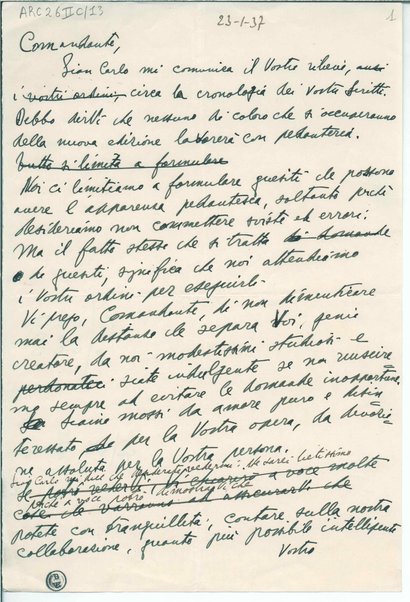 ARC 26 II C/13
23-1-37
1
Comandante,
Gian Carlo mi comunica il Vostro rilievo, anzi
i vostri ordini, circa la cronologia dei Vostri Scritti.
Debbo dirVi che nessuno di coloro che si occuperanno
della nuova edizione lavorerà con pedanteria.
Tutto si limita a formulare
Noi ci limitiamo a formulare quesiti che possono
avere l'apparenza pedantesca, soltanto perchè
desideriamo non commettere sviste ed errori;
Ma il fatto stesso che si tratta di domande
e di quesiti, significa che noi attendiamo
i Vostri ordini per eseguirli.
Vi prego, Comandante, di non dimenticare
mai la distanza che separa Voi, genio
creatore, da noi modestissimi studiosi e
perdonateci siate indulgente se non riuscire=
mo sempre ad evitare le domande inopportune.
siamo mossi da amore puro e disin
teressato per la Vostra opera, da devozio=
ne assoluta per la Vostra persona.
Gian Carlo mi dice che Ne sarei lietissimo
Se potrò vederVi, Vi a voce molte
perchè a voce potrò
cose che varranno ad assicurarVi che
potete con tranquillità, contare sulla nostra
collaborazione, quanto più possibile intelligente
Vostro